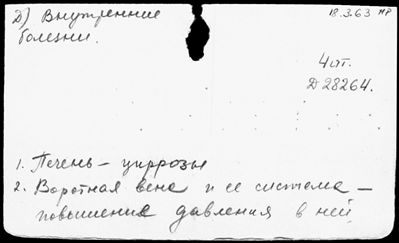 Д) Внутренние
болезни.
18.3.63 нр
4 от.
Д 28264.
1. Печень – циррозы
2. Воротная вена и ее система –
повышение давления в ней